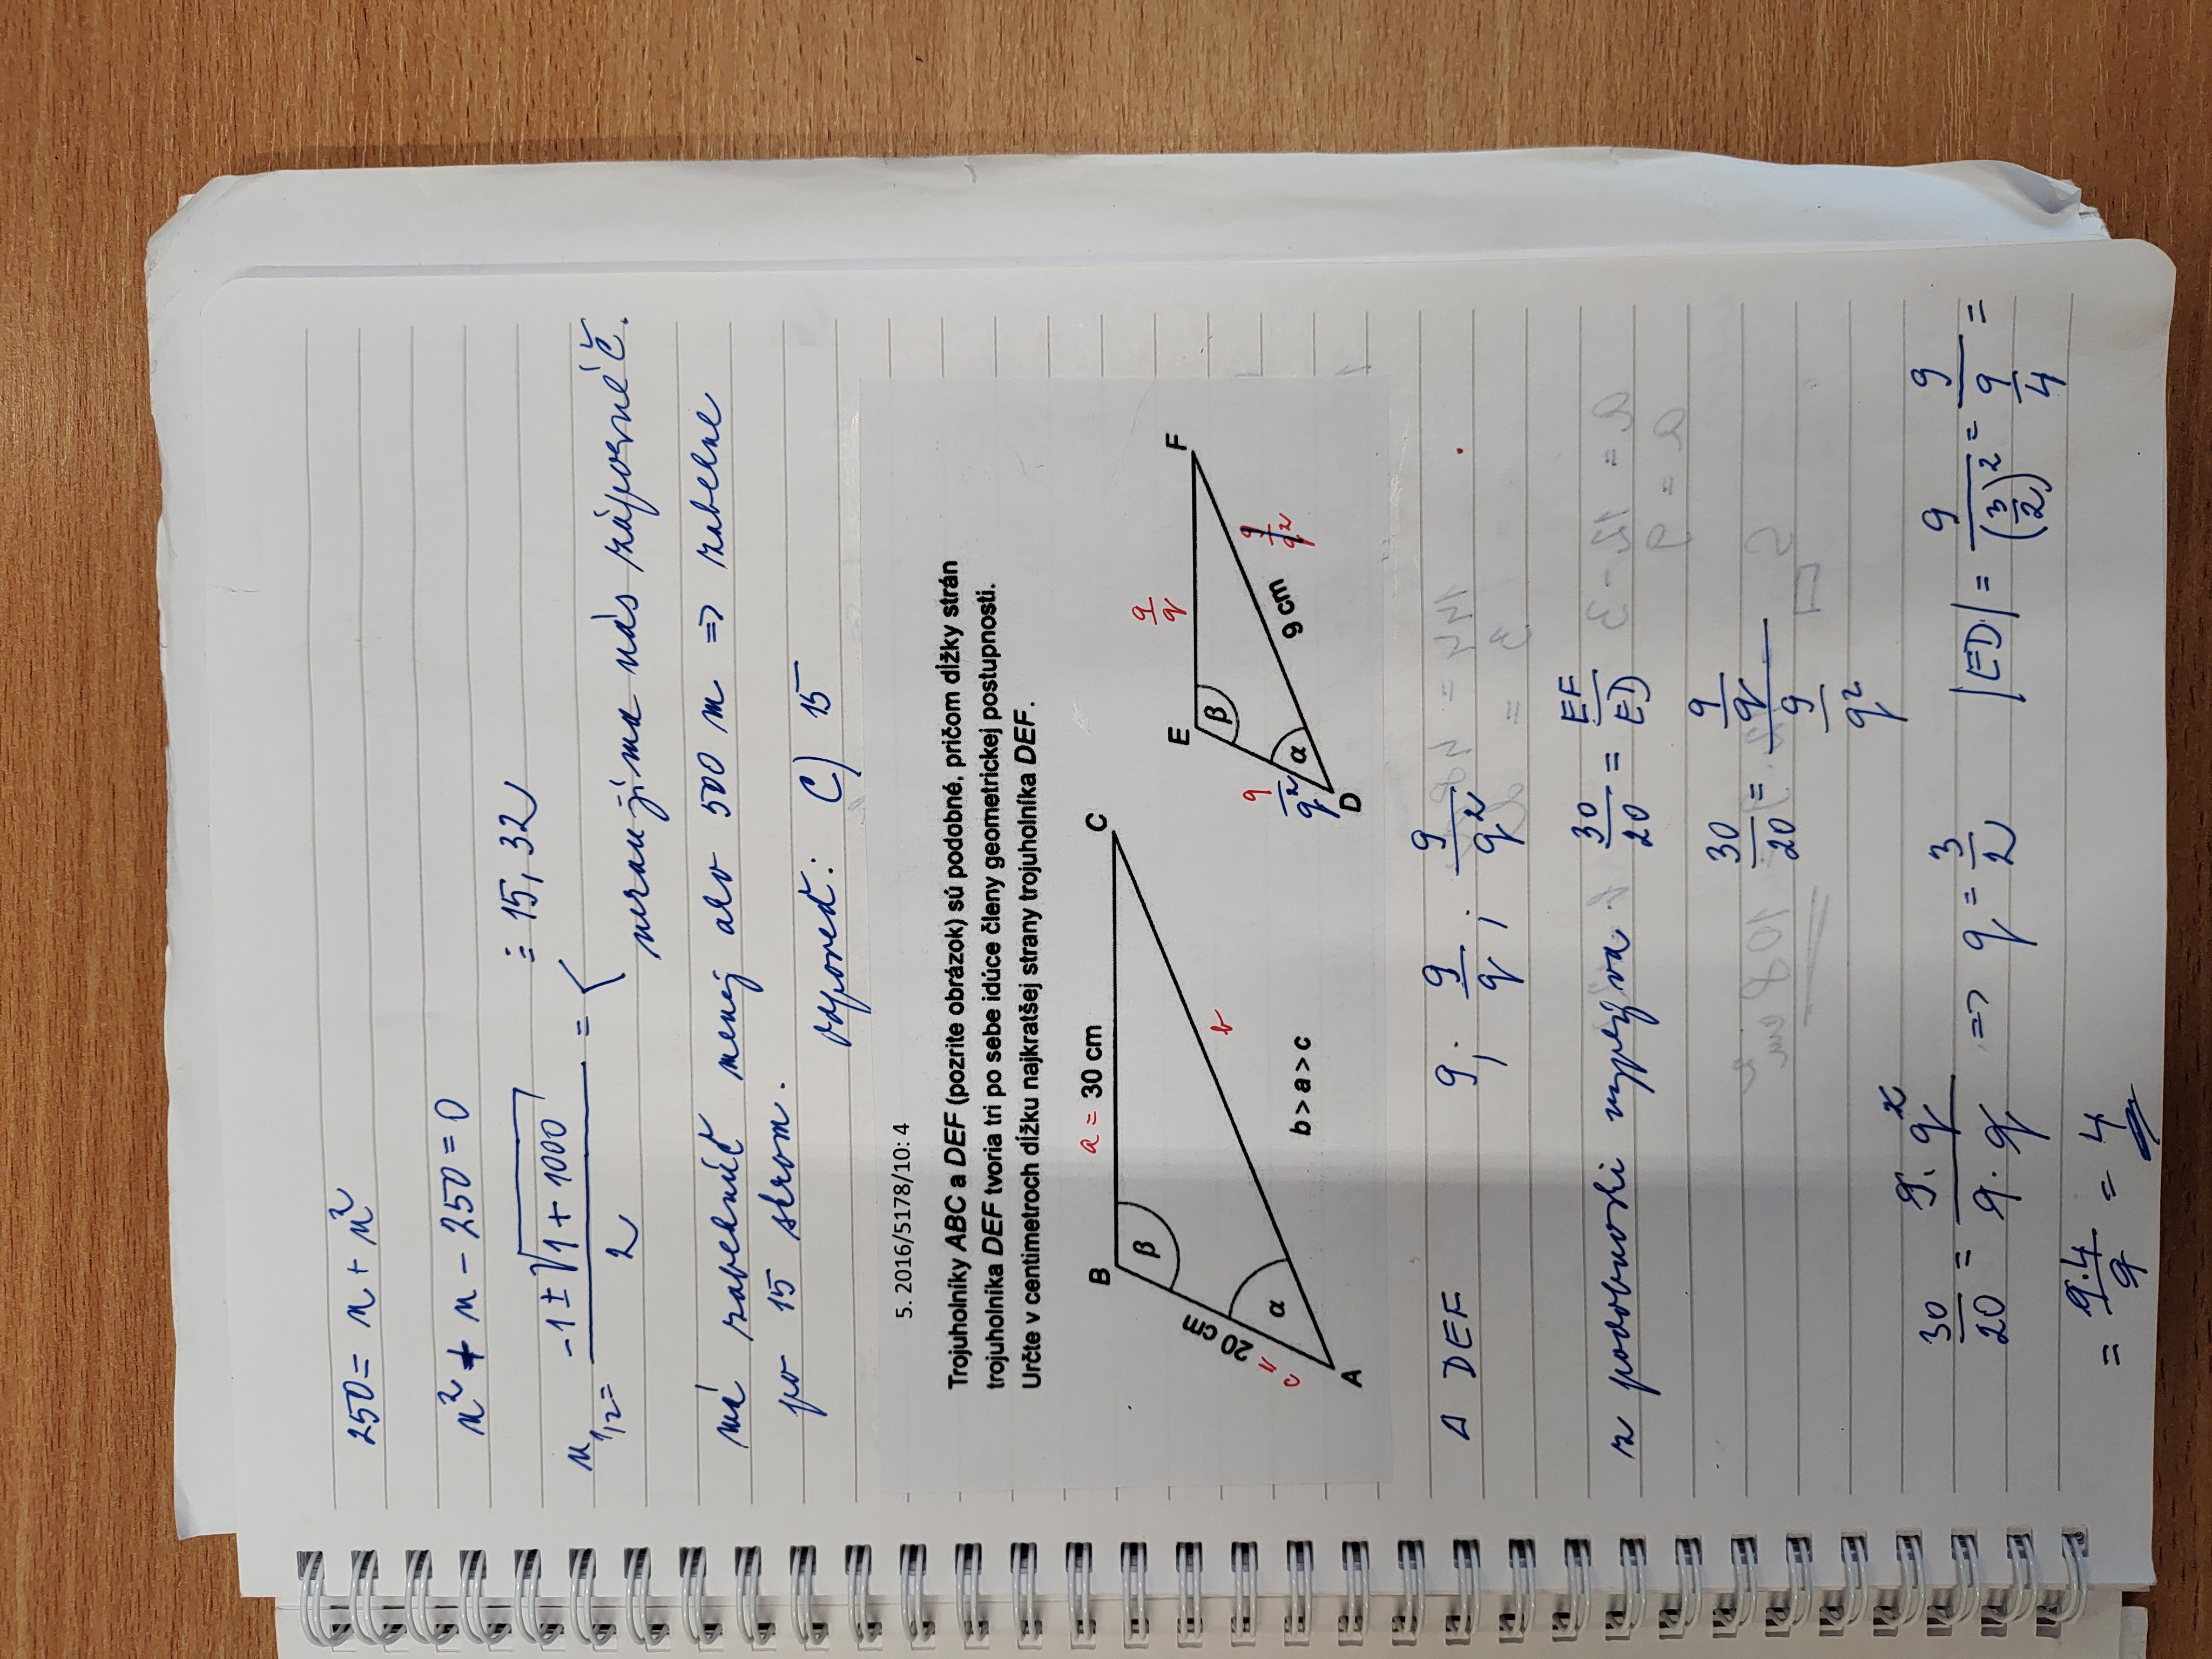 250 = n + n²
n² + n - 250 = 0
n₁,₂ = (-1 ± √(1 + 1000)) / 2 = < ≐ 15,32
nezaujíma nás záporné č.
má zabehnúť menej ako 500 m => zabehne
po 15 strom. odpoveď: C) 15
5. 2016/5178/10: 4
Trojuholníky ABC a DEF (pozrite obrázok) sú podobné, pričom dĺžky strán
trojuholníka DEF tvoria tri po sebe idúce členy geometrickej postupnosti.
Určte v centimetroch dĺžku najkratšej strany trojuholníka DEF.
B a = 30 cm C
β
20 cm
c =
α
A
b
b > a > c
E 9/q F
β
9/q²
α
D
9 cm
9/q²
Δ DEF 9; 9/q; 9/q²
z podobnosti vyplýva: 30/20 = EF/ED
30/20 = (9/q)/(9/q²)
30/20 = 9·q²/9·q => q = 3/2 |ED| = 9/(3/2)² = 9/(9/4) =
= 9·4/9 = 4